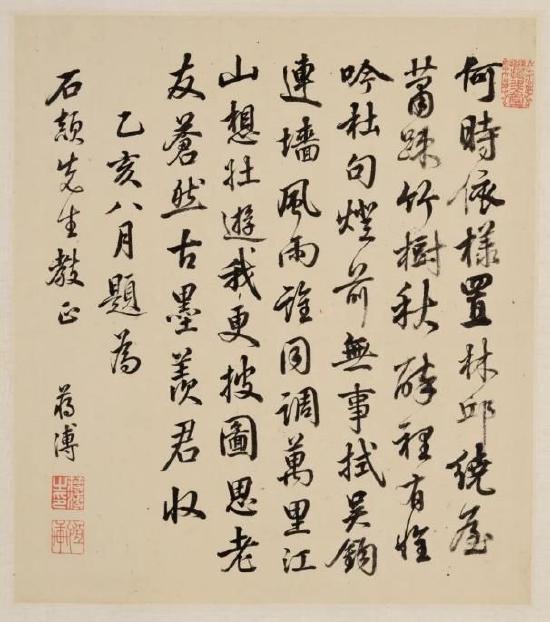 何時依樣置林邱繞屋
蕭踈竹樹秋醉裡有懷
吟杜句燈前無事拭吳鉤
連墻風雨誰同調萬里江
山想壯遊我更披圖思老
友蒼然古墨羨君收
乙亥八月題為
石頡先生教正
蔣溥